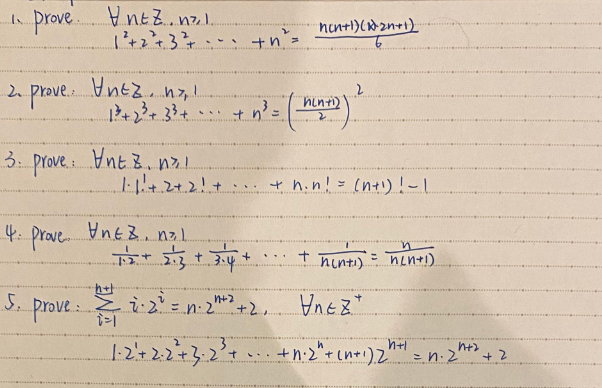 1. prove. ∀n∈Z, n≥1
1²+2²+3²+ ··· +n² = n(n+1)(2n+1)/6
2. prove: ∀n∈Z, n≥1
1³+2³+3³+ ··· + n³ = (n(n+1)/2)²
3. prove: ∀n∈Z, n≥1
1·1!+2+2!+ ··· + n·n! = (n+1)!-1
4. prove ∀n∈Z, n≥1
1/1·2 + 1/2·3 + 1/3·4 + ··· + 1/n(n+1) = n/n(n+1)
5. prove: ∑_{i=1}^{n+1} i·2^i = n·2^{n+2}+2, ∀n∈Z⁺
1·2¹+2·2²+3·2³+ ··· +n·2^n+(n+1)2^{n+1} = n·2^{n+2}+2